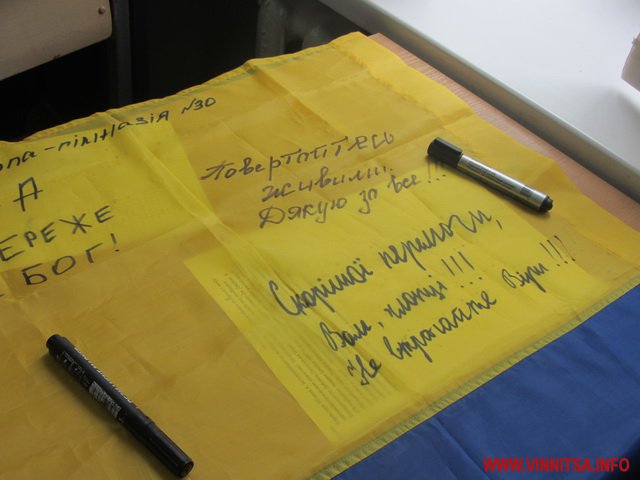 гімназія №30
А
ЕРЕЖЕ
БОГ!
Повертайтесь
живими.
Дякую за все!!!
Скорішої перемоги,
Вам, хлопці!!!
Не втрачайте Віри!!!
WWW.VINNITSA.INFO